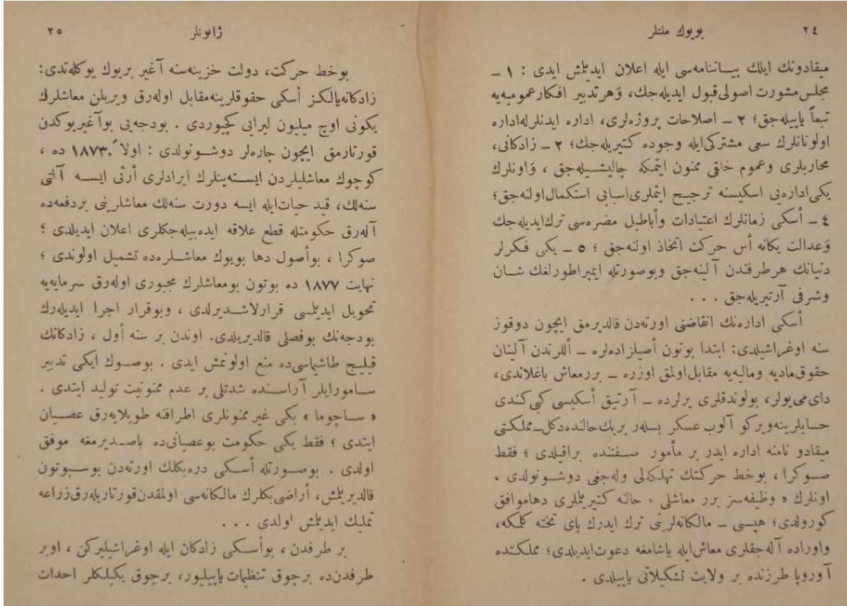 ٢٤
بويوك ملتلر
ميقادونك ايلك بيـاننامه‌سى ايله اعلان ايديلمش ايدى : ١ ـ
مجلس مشورت اصولى قبول ايديله‌جك، وَهر تدبير افكار عموميه‌يه
تبعاً ياپيله‌جق؛ ٢ ـ اصلاحات پروژه‌لرى، اداره ايدنلرله اداره
اولونانلرك سعى مشتركى‌ايله وجوده كتيريله‌جك؛ ٣ ـ زادكانى،
محاربلرى وعموم خلقى ممنون ايتمكه چاليشـيله‌جق ، وَاونلرك
يكى اداره‌يى اسكيسنه ترجيح ايتملرى اسبابى استكمال اولنه‌جق؛
٤ ـ أسكى زمانلرك اعتيادات وأباطيل مضره‌سى ترك ايديله‌جك
وَعدالت يكانه أس حركت اتخاذ اولنه‌جق ؛ ٥ ـ يكى فكرلر
دنيانك هر طرفندن آلينه‌جق وبوصورتله ايمپراطورلغك شـان
وشرفى آرتيريله‌جق . . .
أسكى اداره‌نك انقاضنى اورته‌دن قالديرمق ايچون دوقوز
سنه اوغراشيلدى: ابتدا بوتون أصيلزاده‌لره ـ أللرندن آلينان
حقوق ماديه وماليه‌يه مقابل اولمق اوزره ـ بررمعاش باغلاندى،
داى‌مى‌يولر، بولوندقلرى يرلرده ـ آرتيق أسكيسى كبى كندى
حسابلرينه ويركو آلوب عسكر بسلر بربك حالنده دكل ـ مملكتى
ميقادو نامنه اداره ايدر بر مأمور صـفتنده براقيلدى ؛ فقط
صـوكرا ، بوخط حركتك تهلكه‌لى اوله‌جغى دوشـونولدى .
اونلرك « وظيفه‌سز برر معاشلى » حالنه كتيريلملرى دها موافق
كورولدى؛ هپسى ـ مالكانه‌لرينى ترك ايدرك پاى تخته كلمكه،
واوراده آله‌جقلرى معاش ايله ياشامغه دعوت ايديلدى؛ مملكتده
آوروپا طرزنده بر ولايت تشكيلاتى ياپيلدى .
ژاپونلر
٢٥
بوخط حركت، دولت خزينه‌سنه آغير بريوك يوكله‌تدى:
زادكانه يالكز أسكى حقوقلرينه مقابل اوله‌رق ويريلن معاشلرك
يكونى اوچ ميليون ليرايى كچيوردى . بودجه‌يى بوآغيريوكدن
قورتارمق ايچون چاره‌لر دوشـونولدى : اولا ً، ١٨٧٣ ده ،
كوچوك معاشليلردن ايسـته‌ينلرك ايرادلرى أرثى ايسـه آلتى
سنه‌لك، قيد حيات‌ايله ايسه دورت سنه‌لك معاشلرينى بردفعه‌ده
آله‌رق حكومتله قطع علاقه ايده‌بيله‌جكلرى اعلان ايديلدى ؛
صوكرا ، بوأصول دها بويوك معاشـلره‌ده تشميل اولوندى ؛
نهايت ١٨٧٧ ده بوتون بومعاشلرك مجبورى اوله‌رق سرمايه‌يه
تحويل ايديلمسى قرارلاشـديرلدى ، وبوقرار اجرا ايديله‌رك
بودجه‌نك بوفصلى قالديريلدى. اوندن بر سنه أول ، زادكانك
قيليج طاشيماسى‌ده منع اولونمش ايدى . بوصـوك ايكى تدبير
سـامورايلر آراسـنده شدتلى بر عدم ممنونيت توليد ايتدى .
« سـاچوما » بكى غيرممنونلرى اطرافنه طوپلايه‌رق عصـيان
ايتدى ؛ فقط يكى حكومت بوعصيانى‌ده باصـديرمغه موفق
اولدى . بوصـورتله أسـكى دره‌بكلك اورته‌دن بوسـبوتون
قالديريلمش، أراضى بكلرك مالكانه‌سى اولمقدن قورتاريله‌رق زراعه
تمليك ايديلمش اولدى . . .
بر طرفدن ، بوأسـكى زادكان ايله اوغراشيليركن ، اوبر
طرفدن‌ده برچوق تنظيمات ياپيليور، برچوق يكيلكلر احداث